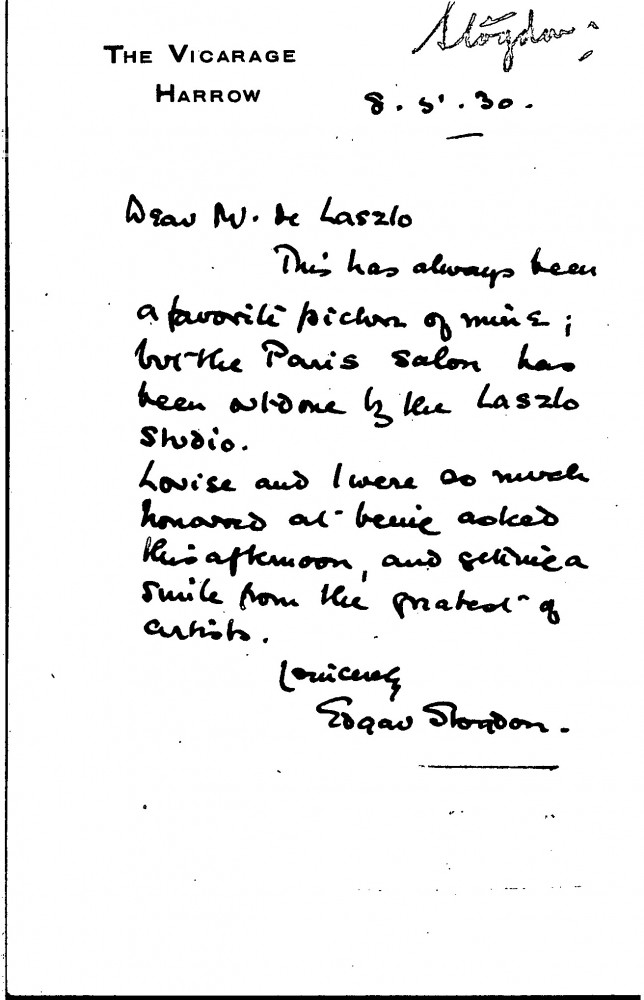 Stogdon;
THE VICARAGE
HARROW
8.5.30.
Dear Mr. de Laszlo
This has always been
a favorite picture of mine;
but the Paris Salon has
been outdone by the Laszlo
Studio.
Louise and I were so much
honored at being asked
this afternoon, and getting a
smile from the greatest of
artists.
Yr sincerely
Edgar Stogdon.